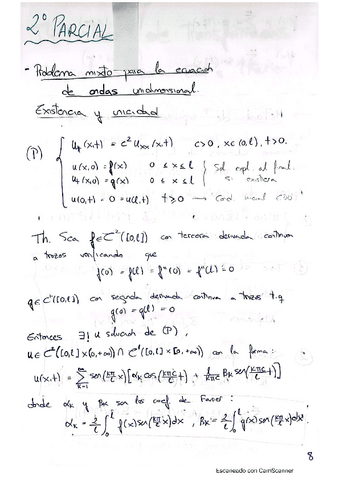 2º PARCIAL
- Problema mixto para la ecuación
de ondas unidimensional.
Existencia y unicidad
(P) { u_t(x,t) = c² u_xx(x,t)   c>0, x∈(0,l), t>0.
u(x,0) = f(x)   0 ≤ x ≤ l
u_t(x,0) = g(x)   0 ≤ x ≤ l
} Sol expl. al final
si existiera
u(0,t) = 0 = u(l,t)   t≥0 →
Th. Sea f∈C²([0,l]) con tercera derivada continua
a trozos verificando que
f(0) = f(l) = f''(0) = f''(l) = 0
g∈C¹([0,l]) con segunda derivada continua a trozos t.q
g(0) = g(l) = 0
Entonces ∃! u solución de (P),
u∈C²([0,l]×[0,+∞)) ∩ C¹([0,l]×[0,+∞)) con la forma:
u(x,t) = Σ_{k=1}^∞ sen(kπ/l x)[α_k cos(kπc/l t) + l/kπc β_k sen(kπc/l t)]
donde α_k y β_k son los coef. de Fourier:
α_k = 2/l ∫_0^l f(x) sen(kπ/l x)dx , β_k = 2/l ∫_0^l g(x) sen(kπ/l x)dx
8
Escaneado con CamScanner